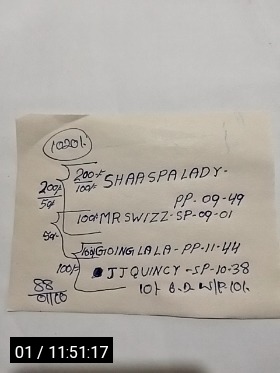 1020/-
200/- SHAASPA LADY-
100/-
200/- PP-09-49
50/-
100/- MR SWIZZ-SP-09-01
50/-
100/- GOING LALA-PP-11-44
100/- JJ QUINCY-SP-10-38
88 10/- B.D. W/P. 10/-
01 / 11:51:17